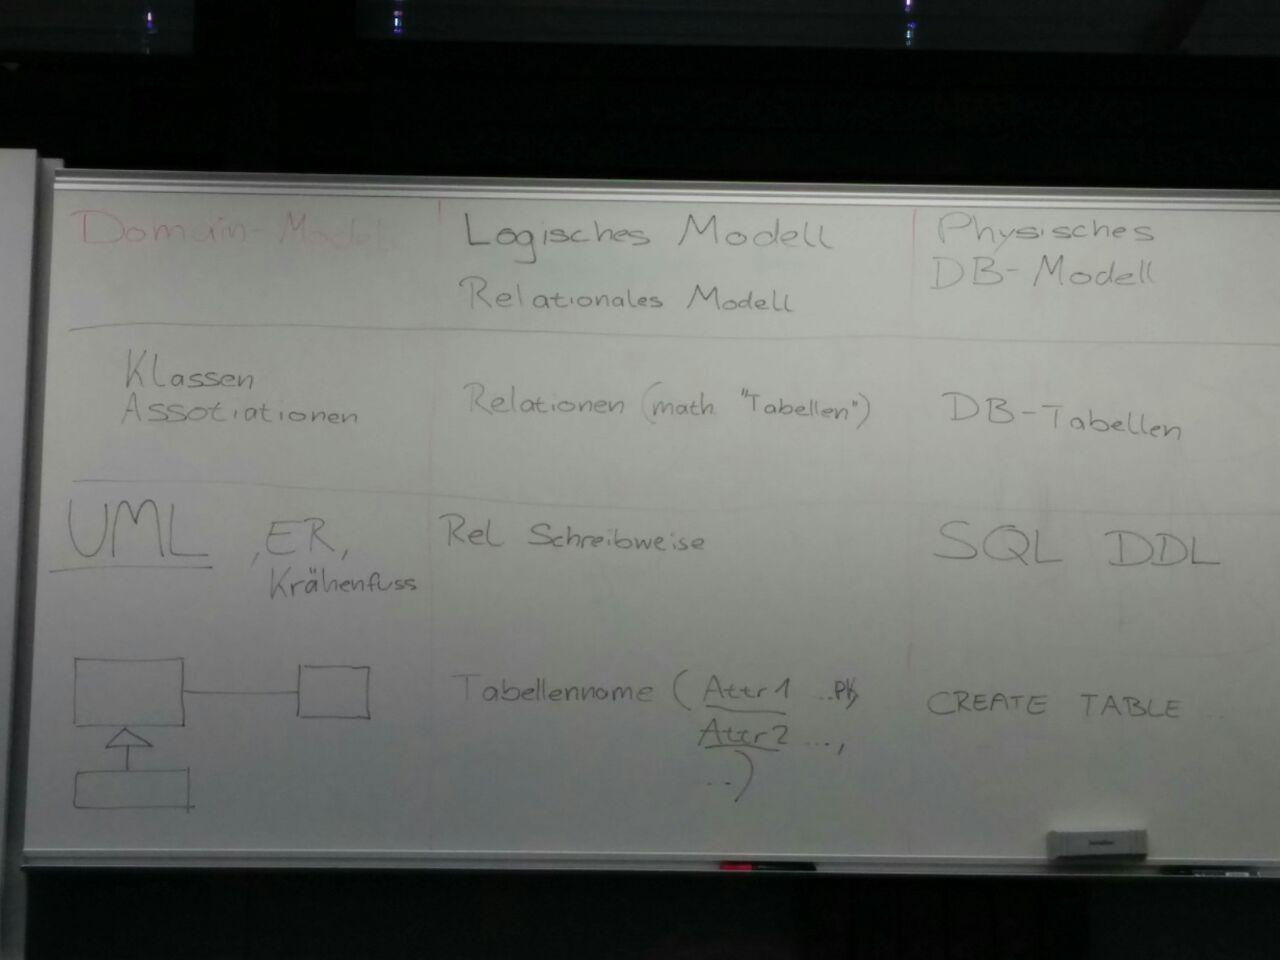 Domain-Model
Logisches Modell
Relationales Modell
Physisches
DB-Modell
Klassen
Assotiationen
Relationen (math "Tabellen")
DB-Tabellen
UML , ER,
Krähenfuss
Rel Schreibweise
SQL DDL
Tabellenname (Attr1 ...PK,
Attr2 ...,
...)
CREATE TABLE ...